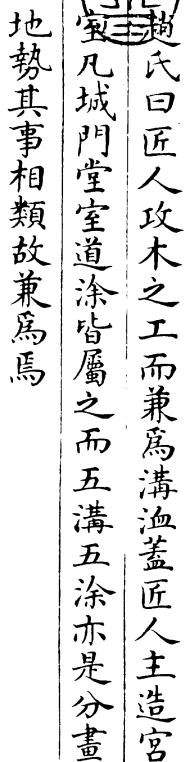 趙氏曰匠人攻木之工而兼爲溝洫蓋匠人主造宮
室凡城門堂室道涂皆屬之而五溝五涂亦是分畫
地勢其事相類故兼爲焉